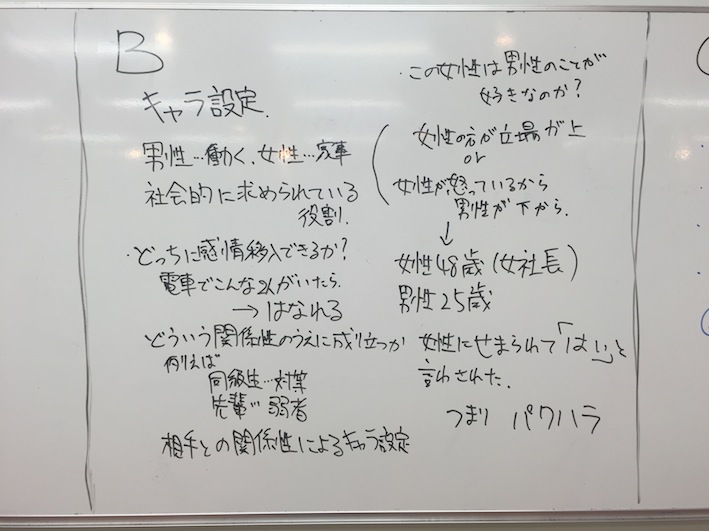 B
キャラ設定.
男性…働く、女性…家事
社会的に求められている
役割.
・どっちに感情移入できるか?
電車でこんな2人がいたら.
→はなれる
どういう関係性のうえに成り立つか
例えば
同級生…対等
先輩…弱者
相手との関係性によるキャラ設定
・この女性は男性のことが
好きなのか?
女性の方が立場が上
or
女性が怒っているから
男性が下から.
↓
女性48歳(女社長)
男性25歳
女性にせまられて「はい」と
言わされた.
つまり パワハラ